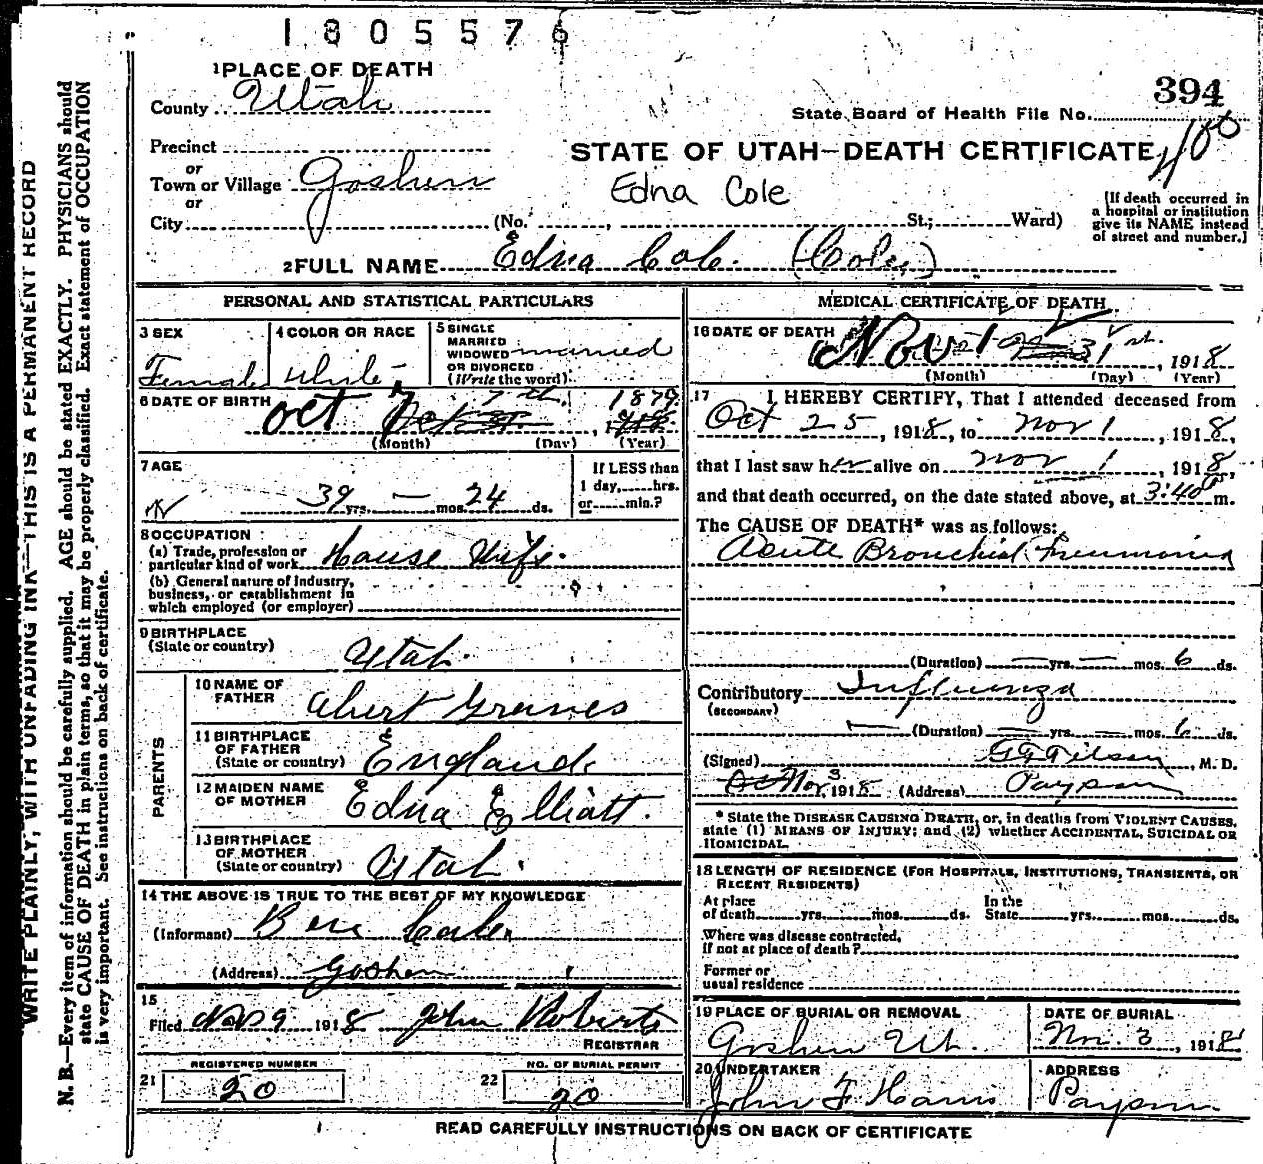 1805576
1 PLACE OF DEATH
County Utah
394
State Board of Health File No.
400
Precinct
or
Town or Village Goshen
or
City
STATE OF UTAH—DEATH CERTIFICATE
Edna Cole
(No. , St.; Ward)
[If death occurred in
a hospital or institution
give its NAME instead
of street and number.]
2 FULL NAME Edna Cole (Cole)
PERSONAL AND STATISTICAL PARTICULARS
3 SEX
Female
4 COLOR OR RACE
White
5 SINGLE
MARRIED
WIDOWED married
OR DIVORCED
(Write the word)
6 DATE OF BIRTH
oct 7 7th, 1879
(Month) (Day) (Year)
7 AGE
39 yrs. — mos. 24 ds.
If LESS than
1 day, hrs.
or min.?
8 OCCUPATION
(a) Trade, profession or
particular kind of work House Wife.
(b) General nature of industry,
business, or establishment in
which employed (or employer)
9 BIRTHPLACE
(State or country) Utah.
PARENTS
10 NAME OF
FATHER Albert Greaves
11 BIRTHPLACE
OF FATHER
(State or country) England.
12 MAIDEN NAME
OF MOTHER Edna Elliatt.
13 BIRTHPLACE
OF MOTHER
(State or country) Utah.
14 THE ABOVE IS TRUE TO THE BEST OF MY KNOWLEDGE
(Informant) Ben Cole.
(Address) Goshen
15
Filed Nov 9 1918 John Roberts
REGISTRAR
21 REGISTERED NUMBER
20
22 NO. OF BURIAL PERMIT
20
MEDICAL CERTIFICATE OF DEATH
16 DATE OF DEATH
Nov 1 31 st., 1918
(Month) (Day) (Year)
17 I HEREBY CERTIFY, That I attended deceased from
Oct 25, 1918, to Nov 1, 1918,
that I last saw her alive on Nov 1, 1918,
and that death occurred, on the date stated above, at 3:40 m.
The CAUSE OF DEATH* was as follows:
Acute Bronchial Pneumonia
(Duration) — yrs. — mos. 6 ds.
Contributory Influenza
(SECONDARY)
(Duration) — yrs. — mos. 6 ds.
(Signed) , M. D.
Nov 3 1918 (Address) Payson
* State the DISEASE CAUSING DEATH, or, in deaths from VIOLENT CAUSES,
state (1) MEANS OF INJURY; and (2) whether ACCIDENTAL, SUICIDAL OR
HOMICIDAL.
18 LENGTH OF RESIDENCE (FOR HOSPITALS, INSTITUTIONS, TRANSIENTS, OR
RECENT RESIDENTS)
At place
of death yrs. mos. ds.
In the
State yrs. mos. ds.
Where was disease contracted,
If not at place of death?
Former or
usual residence
19 PLACE OF BURIAL OR REMOVAL
Goshen Ut.
DATE OF BURIAL
Nov. 3, 1918
20 UNDERTAKER
John F Hanes
ADDRESS
Payson
READ CAREFULLY INSTRUCTIONS ON BACK OF CERTIFICATE
WRITE PLAINLY, WITH UNFADING INK—THIS IS A PERMANENT RECORD
N. B.—Every item of information should be carefully supplied. AGE should be stated EXACTLY. PHYSICIANS should
state CAUSE OF DEATH in plain terms, so that it may be properly classified. Exact statement of OCCUPATION
is very important. See instructions on back of certificate.